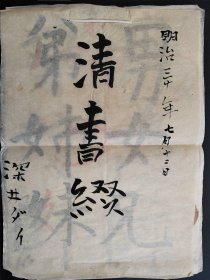 明治三十年七月十三日
清書綴
深井ダイ
男女兄
弟姉妹